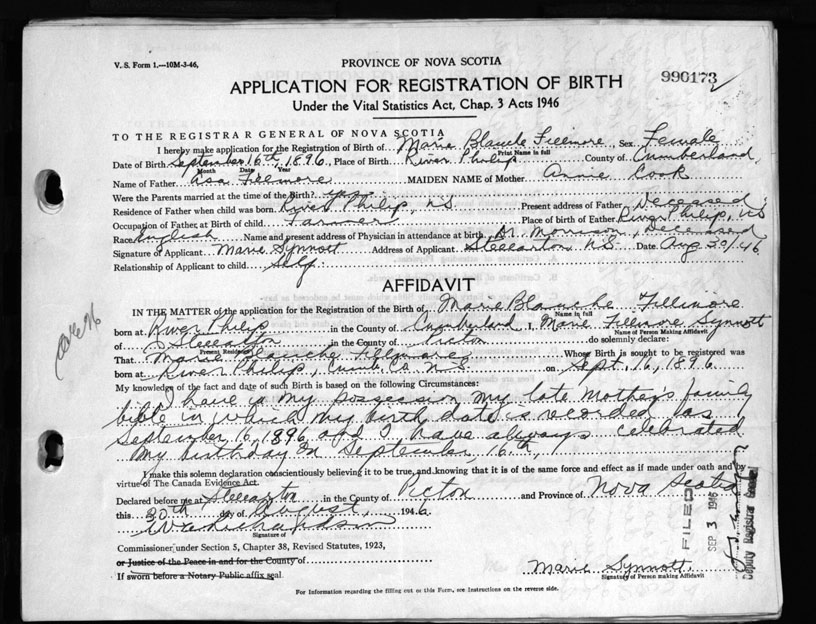 V. S. Form 1.—10M-3-46,
PROVINCE OF NOVA SCOTIA
990173
APPLICATION FOR REGISTRATION OF BIRTH
Under the Vital Statistics Act, Chap. 3 Acts 1946
TO THE REGISTRAR GENERAL OF NOVA SCOTIA
I hereby make application for the Registration of Birth of Marie Blanche Fillmore, Sex Female
Print Name in full
Date of Birth September 16th, 1896, Place of Birth River Philip County of Cumberland
Month Date Year
Name of Father Asa Fillmore MAIDEN NAME of Mother Annie Cook
Were the Parents married at the time of the Birth? yes
Residence of Father when child was born River Philip, N.S. Present address of Father Deceased
Occupation of Father, at Birth of child Farmer Place of birth of Father River Philip, NS
Race English Name and present address of Physician in attendance at birth Dr. Morrison, Deceased
Signature of Applicant Marie Synnott Address of Applicant Stellarton, N.S. Date Aug 30/46
Relationship of Applicant to child Self
AFFIDAVIT
IN THE MATTER of the application for the Registration of the Birth of Marie Blanche Fillmore
Name in full
born at River Philip in the County of Cumberland I, Marie Fillmore Synnott
Name of Person Making Affidavit
of Stellarton in the County of Picton do solemnly declare:
Present Residence
That Marie Blanche Fillmore Whose Birth is sought to be registered was
born at River Philip, Cumb. Co. N.S. on Sept. 16, 1896
My knowledge of the fact and date of such Birth is based on the following Circumstances:
I have in my possession my late Mother's family
bible in which my birth date is recorded as
September, 16, 1896 and I have always celebrated
my birthday on September, 16th,
I make this solemn declaration conscientiously believing it to be true, and knowing that it is of the same force and effect as if made under oath and by
virtue of The Canada Evidence Act.
Declared before me at Stellarton in the County of Picton and Province of Nova Scotia
this 30th day of August, 1946
Signature of
Commissioner under Section 5, Chapter 38, Revised Statutes, 1923,
or Justice of the Peace in and for the County of
If sworn before a Notary Public affix seal.
Marie Synnott
Signature of Person making Affidavit
FILED
SEP 3 1946
Deputy Registrar General
For Information regarding the filling out of this Form, see Instructions on the reverse side.